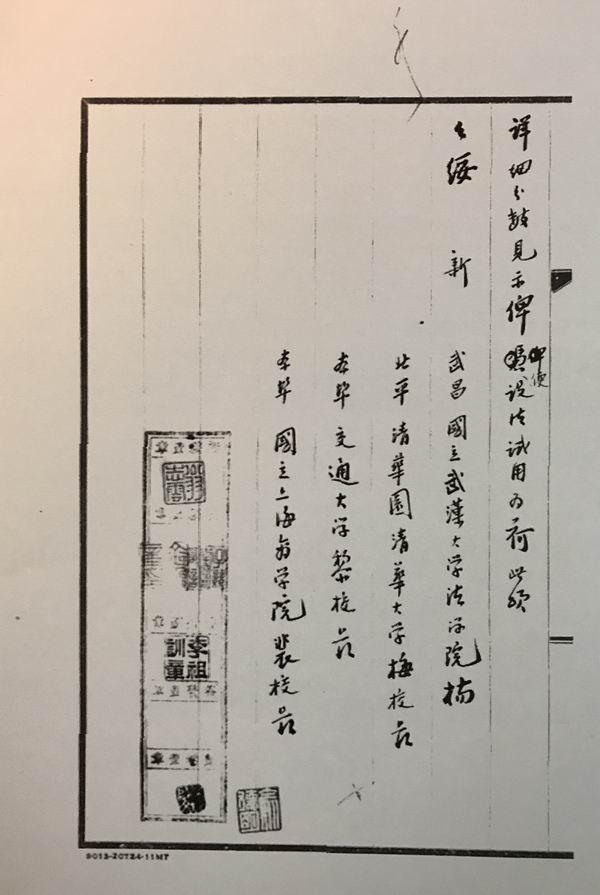 詳细分数見示俾
便
設法试用为荷此頌
公绥 新
武昌國立武漢大学法学院楠
北平清華園清華大学梅校長
本埠交通大学黎校長
本埠國立上海商学院裴校長
李祖
9013-20724-11M7